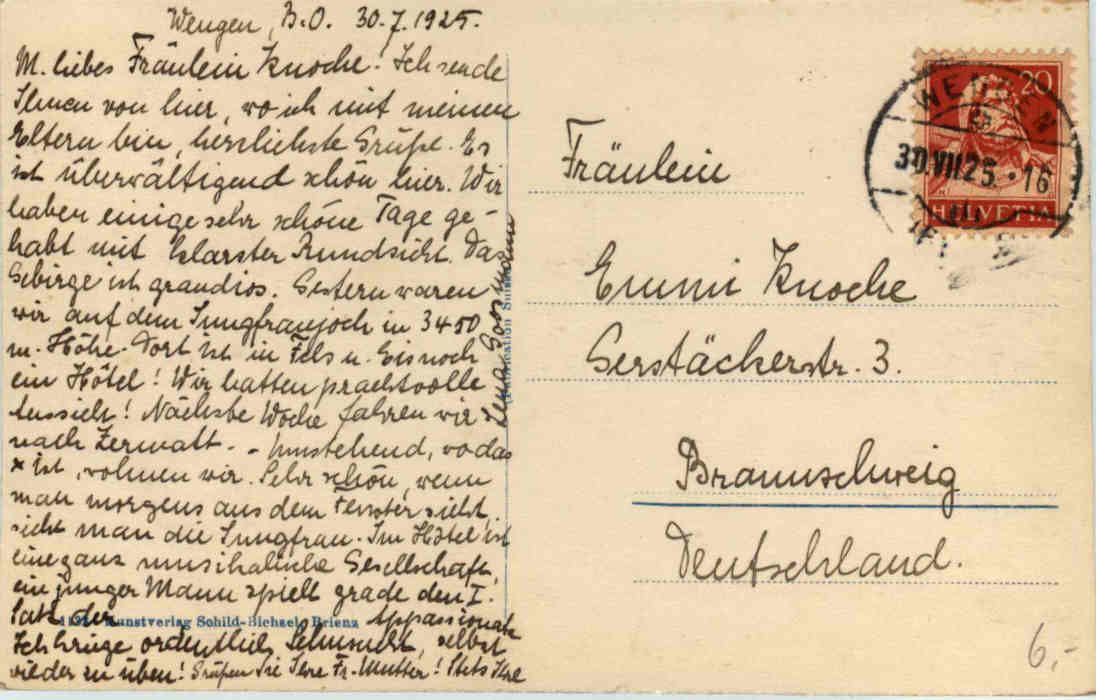 Wengen, B.O. 30.7.1925.
M. liebes Fräulein Knoche! Ich sende
Ihnen von hier, wo ich mit meinen
Eltern bin, herzlichste Grüße. Es
ist überwältigend schön hier. Wir
haben einige sehr schöne Tage ge-
habt mit klarster Rundsicht. Das
Gebirge ist grandios. Gestern waren
wir auf dem Jungfraujoch in 3450
m. Höhe. Dort ist in Fels u. Eis noch
ein Hôtel! Wir hatten prachtvolle
Aussicht! Nächste Woche fahren wir
nach Zermatt. - Umstehend, wo das
x ist, wohnen wir. Sehr schön, wenn
man morgens aus dem Fenster sieht,
sieht man die Jungfrau. Im Hôtel ist
eine ganz musikalische Gesellschaft,
ein junger Mann spielt grade den I.
Satz der Appassionata
Ich kriege ordentlich Sehnsucht, selbst
wieder zu üben! Grüßen Sie Ihre Fr. Mutter! Stets Ihre
Lena
Kunstverlag Schild-Bichsel, Brienz
Fräulein
Emmi Knoche
Gerstäckerstr. 3.
Braunschweig
Deutschland.
20
HELVETIA
WENGEN
30.VII.25.·16
6.-